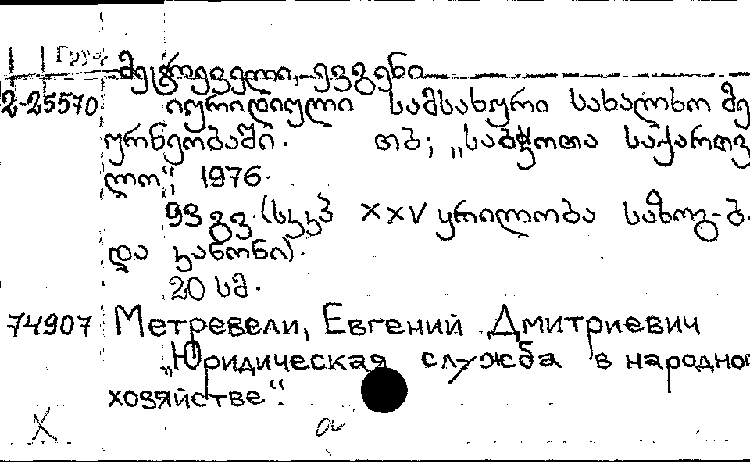 Груз
მეტრეველი, ევგენი
2-25570 იურიდიული სამსახური სახალხო მე
ურნეობაში. თბ; „საბჭოთა საქართვ
ლო“, 1976.
93 გვ. (სკკპ XXV ყრილობა საზოგ-ბ.
და კანონი).
20 სმ.
74907 Метревели, Евгений Дмитриевич
„Юридическая служба в народно
хозяйстве“.
X